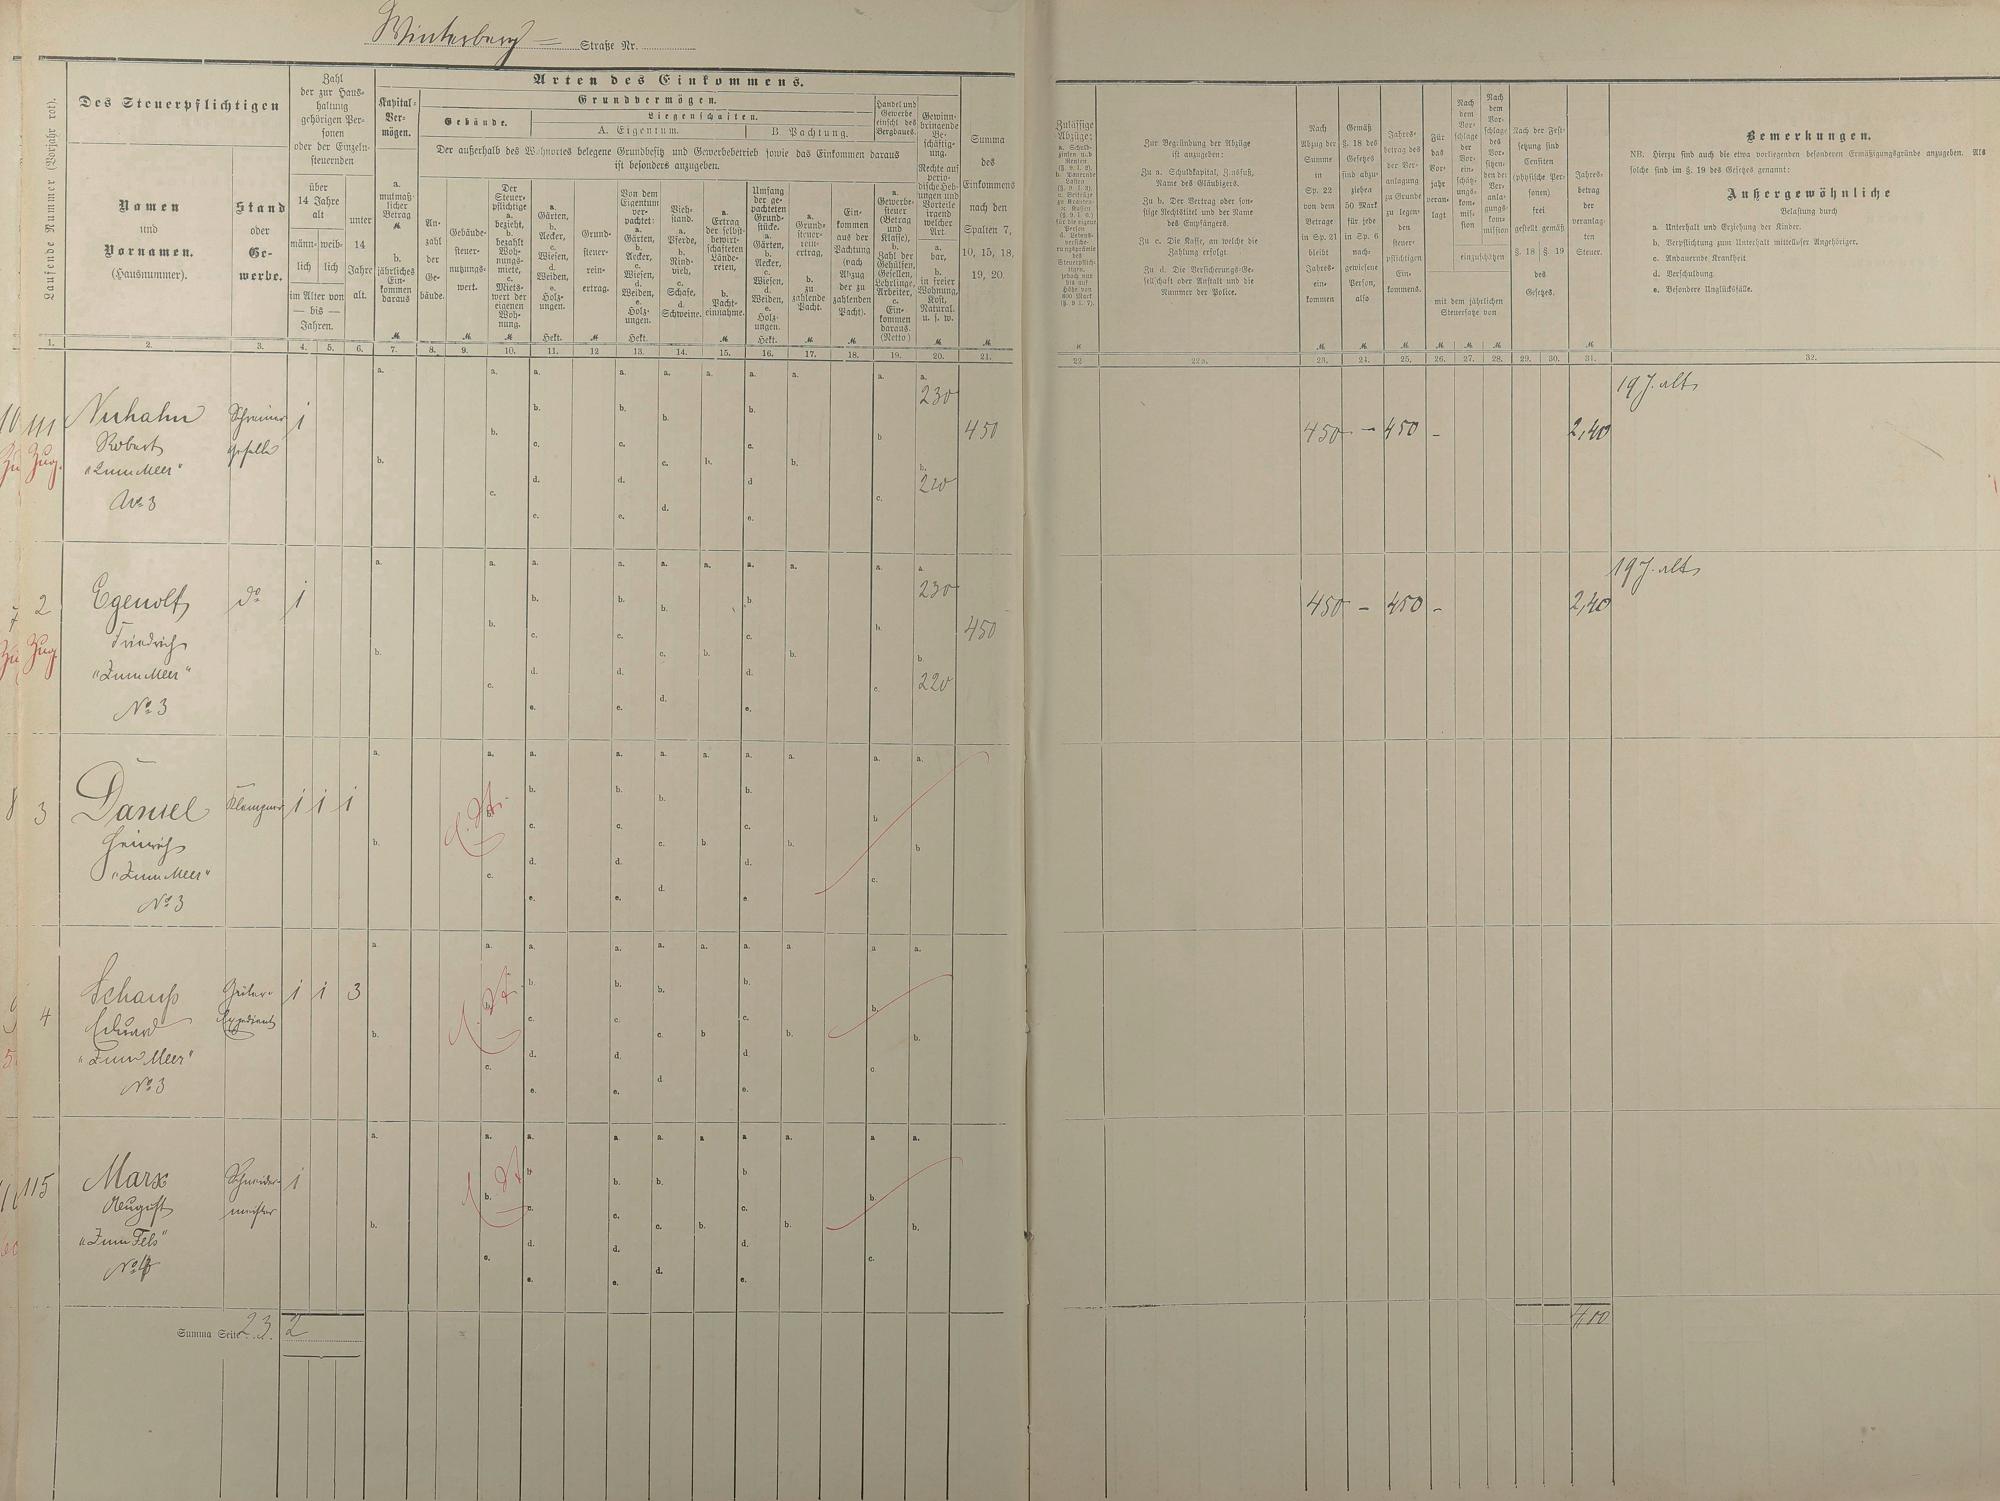 Winterberg Straße Nr.
Laufende Nummer (Vorjahr rot).
Des Steuerpflichtigen
Namen
und
Vornamen.
(Hausnummer).
Stand
oder
Ge-
werbe.
Zahl
der zur Haus-
haltung
gehörigen Per-
sonen
oder der Einzeln-
steuernden
über
14 Jahre
alt
männ-
lich
weib-
lich
im Alter von
— bis —
Jahren.
unter
14
Jahre
alt.
Arten des Einkommens.
Kapital-
Ver-
mögen.
a.
mutmaß-
licher
Betrag
M
b.
jährliches
Ein-
kommen
daraus
M
Grundvermögen.
Gebäude.
Liegenschaften.
A. Eigentum.
B. Pachtung.
Der außerhalb des Wohnortes belegene Grundbesitz und Gewerbebetrieb sowie das Einkommen daraus
ist besonders anzugeben.
An-
zahl
der
Ge-
bäude.
Gebäude-
steuer-
nutzungs-
wert.
M
Der
Steuer-
pflichtige
a.
bezieht,
b.
bezahlt
Woh-
nungs-
miete,
c.
Miets-
wert der
eigenen
Woh-
nung.
M
a.
Gärten,
b.
Aecker,
c.
Wiesen,
d.
Weiden,
e.
Holz-
ungen.
Hekt.
Grund-
steuer-
rein-
ertrag.
M
Von dem
Eigentum
ver-
pachtet:
a.
Gärten,
b.
Aecker,
c.
Wiesen,
d.
Weiden,
e.
Holz-
ungen.
Hekt.
Vieh-
stand.
a.
Pferde,
b.
Rind-
vieh,
c.
Schafe,
d.
Schweine.
a.
Ertrag
der selbst-
bewirt-
schafteten
Lände-
reien,
b.
Pacht-
einnahme.
M
Umfang
der ge-
pachteten
Grund-
stücke.
a.
Gärten,
b.
Aecker,
c.
Wiesen,
d.
Weiden,
e.
Holz-
ungen.
Hekt.
a.
Grund-
steuer-
rein-
ertrag,
b.
zu
zahlende
Pacht.
M
Ein-
kommen
aus der
Pachtung
(nach
Abzug
der zu
zahlenden
Pacht).
M
Handel und
Gewerbe
einschl. des
Bergbaues.
a.
Gewerbe-
steuer
(Betrag
und
Klasse),
b.
Zahl der
Gehülfen,
Gesellen,
Lehrlinge,
Arbeiter,
c.
Ein-
kommen
daraus.
(Netto)
Gewinn-
bringende
Be-
schäftig-
ung.
Rechte auf
perio-
dische Heb-
ungen und
Vorteile
irgend
welcher
Art.
a.
bar,
b.
in freier
Wohnung,
Kost,
Natural.
u. s. w.
M
Summa
des
Einkommens
nach den
Spalten 7,
10, 15, 18,
19, 20.
M
Zulässige
Abzüge:
Zur Begründung der Abzüge
ist anzugeben:
Zu a. Schuldkapital, Zinsfuß,
Name des Gläubigers.
Zu b. Der Vertrag oder son-
stige Rechtstitel und der Name
des Empfängers.
Zu c. Die Kasse, an welche die
Zahlung erfolgt.
Zu d. Die Versicherungs-Ge-
sellschaft oder Anstalt und die
Nummer der Police.
Nach
Abzug der
Summe
in
Sp. 22
von dem
Betrage
in Sp. 21
bleibt
Jahres-
ein-
kommen
M
Gemäß
§. 18 des
Gesetzes
sind abzu-
ziehen
50 Mark
für jede
in Sp. 6
nach-
gewiesene
Person,
also
M
Jahres-
betrag des
der Ver-
anlagung
zu Grunde
zu legen-
den
steuer-
pflichtigen
Ein-
kommens.
M
Für
das
Vor-
jahr
veran-
lagt
Nach
dem
Vor-
schlage
der
Vor-
ein-
schätz-
ungs-
kom-
mis-
sion
Nach
dem
Vor-
schlage
des
Vor-
sitzen-
den der
Ver-
anla-
gungs-
kom-
mission
einzuschätzen
mit dem jährlichen
Steuersatze von
Nach der Fest-
setzung sind
Censiten
(physische Per-
sonen)
frei
gestellt gemäß
§. 18 §. 19
des
Gesetzes.
Jahres-
betrag
der
veranlag-
ten
Steuer.
M
Bemerkungen.
NB. Hierzu sind auch die etwa vorliegenden besonderen Ermäßigungsgründe anzugeben. Als
solche sind im §. 19 des Gesetzes genannt:
Außergewöhnliche
Belastung durch
a. Unterhalt und Erziehung der Kinder.
b. Verpflichtung zum Unterhalt mittelloser Angehöriger.
c. Andauernde Krankheit
d. Verschuldung.
e. Besondere Unglücksfälle.
1. 2. 3. 4. 5. 6. 7. 8. 9. 10. 11. 12 13. 14. 15. 16. 17. 18. 19. 20. 21. 22 22a. 23. 24. 25. 26. 27. 28. 29. 30. 31. 32.
111 Neuhahn Schreiner 1 230 450 450 — 450 - 2,40 19 J. alt
Zug. Robert geselle
"Zum Meer" 220
No 3
2 Egenolf do 1 230 450 450 — 450 - 2,40 19 J. alt
Zug Friedrich
"Zum Meer" 220
No 3
3 Daniel Klempner 1 1 1
Heinrich
"Zum Meer"
No 3
4 Schauß Güter- 1 1 3
Eduard Expedient
"Zum Meer"
No 3
115 Marx Schneider- 1
August meister
"Zum Fels"
No 4
Summa Seite 23. 2